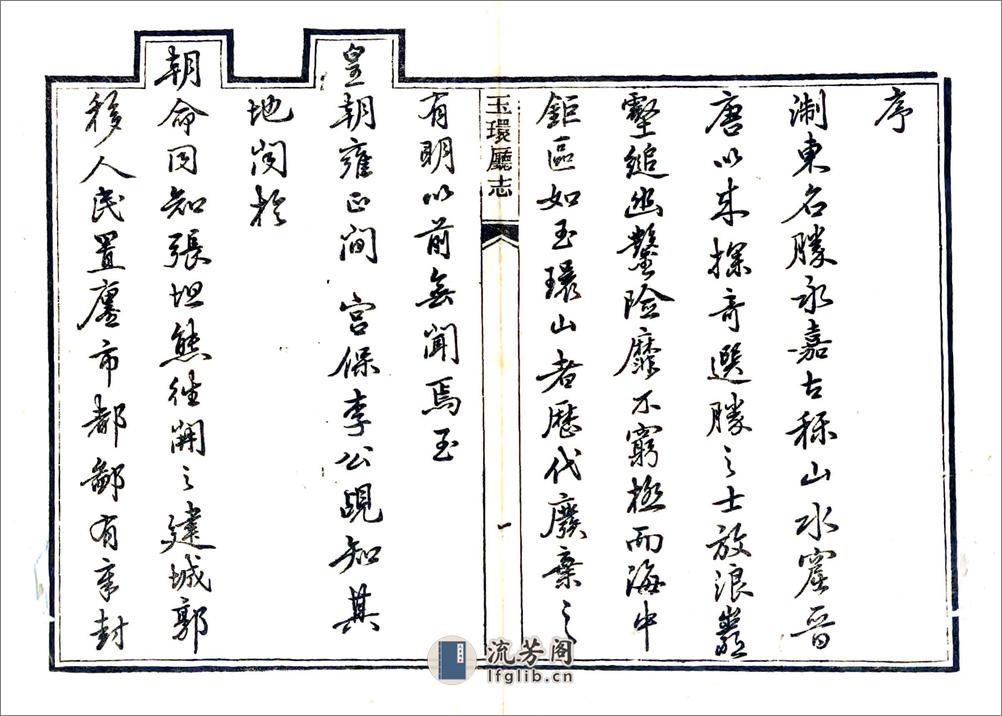 序
淛東名勝永嘉古稱山水窟晉
唐以來探奇選勝之士放浪巖
壑縋幽鑿險靡不窮極而海中
鉅區如玉環山者歷代廢棄之
玉環廳志
一
有明以前無聞焉至
皇朝雍正間 宮保李公覘知其
地閎於
朝命同知張坦熊往開之建城郭
移人民置廛市都鄙有章封
流芳阁
lfglib.cn